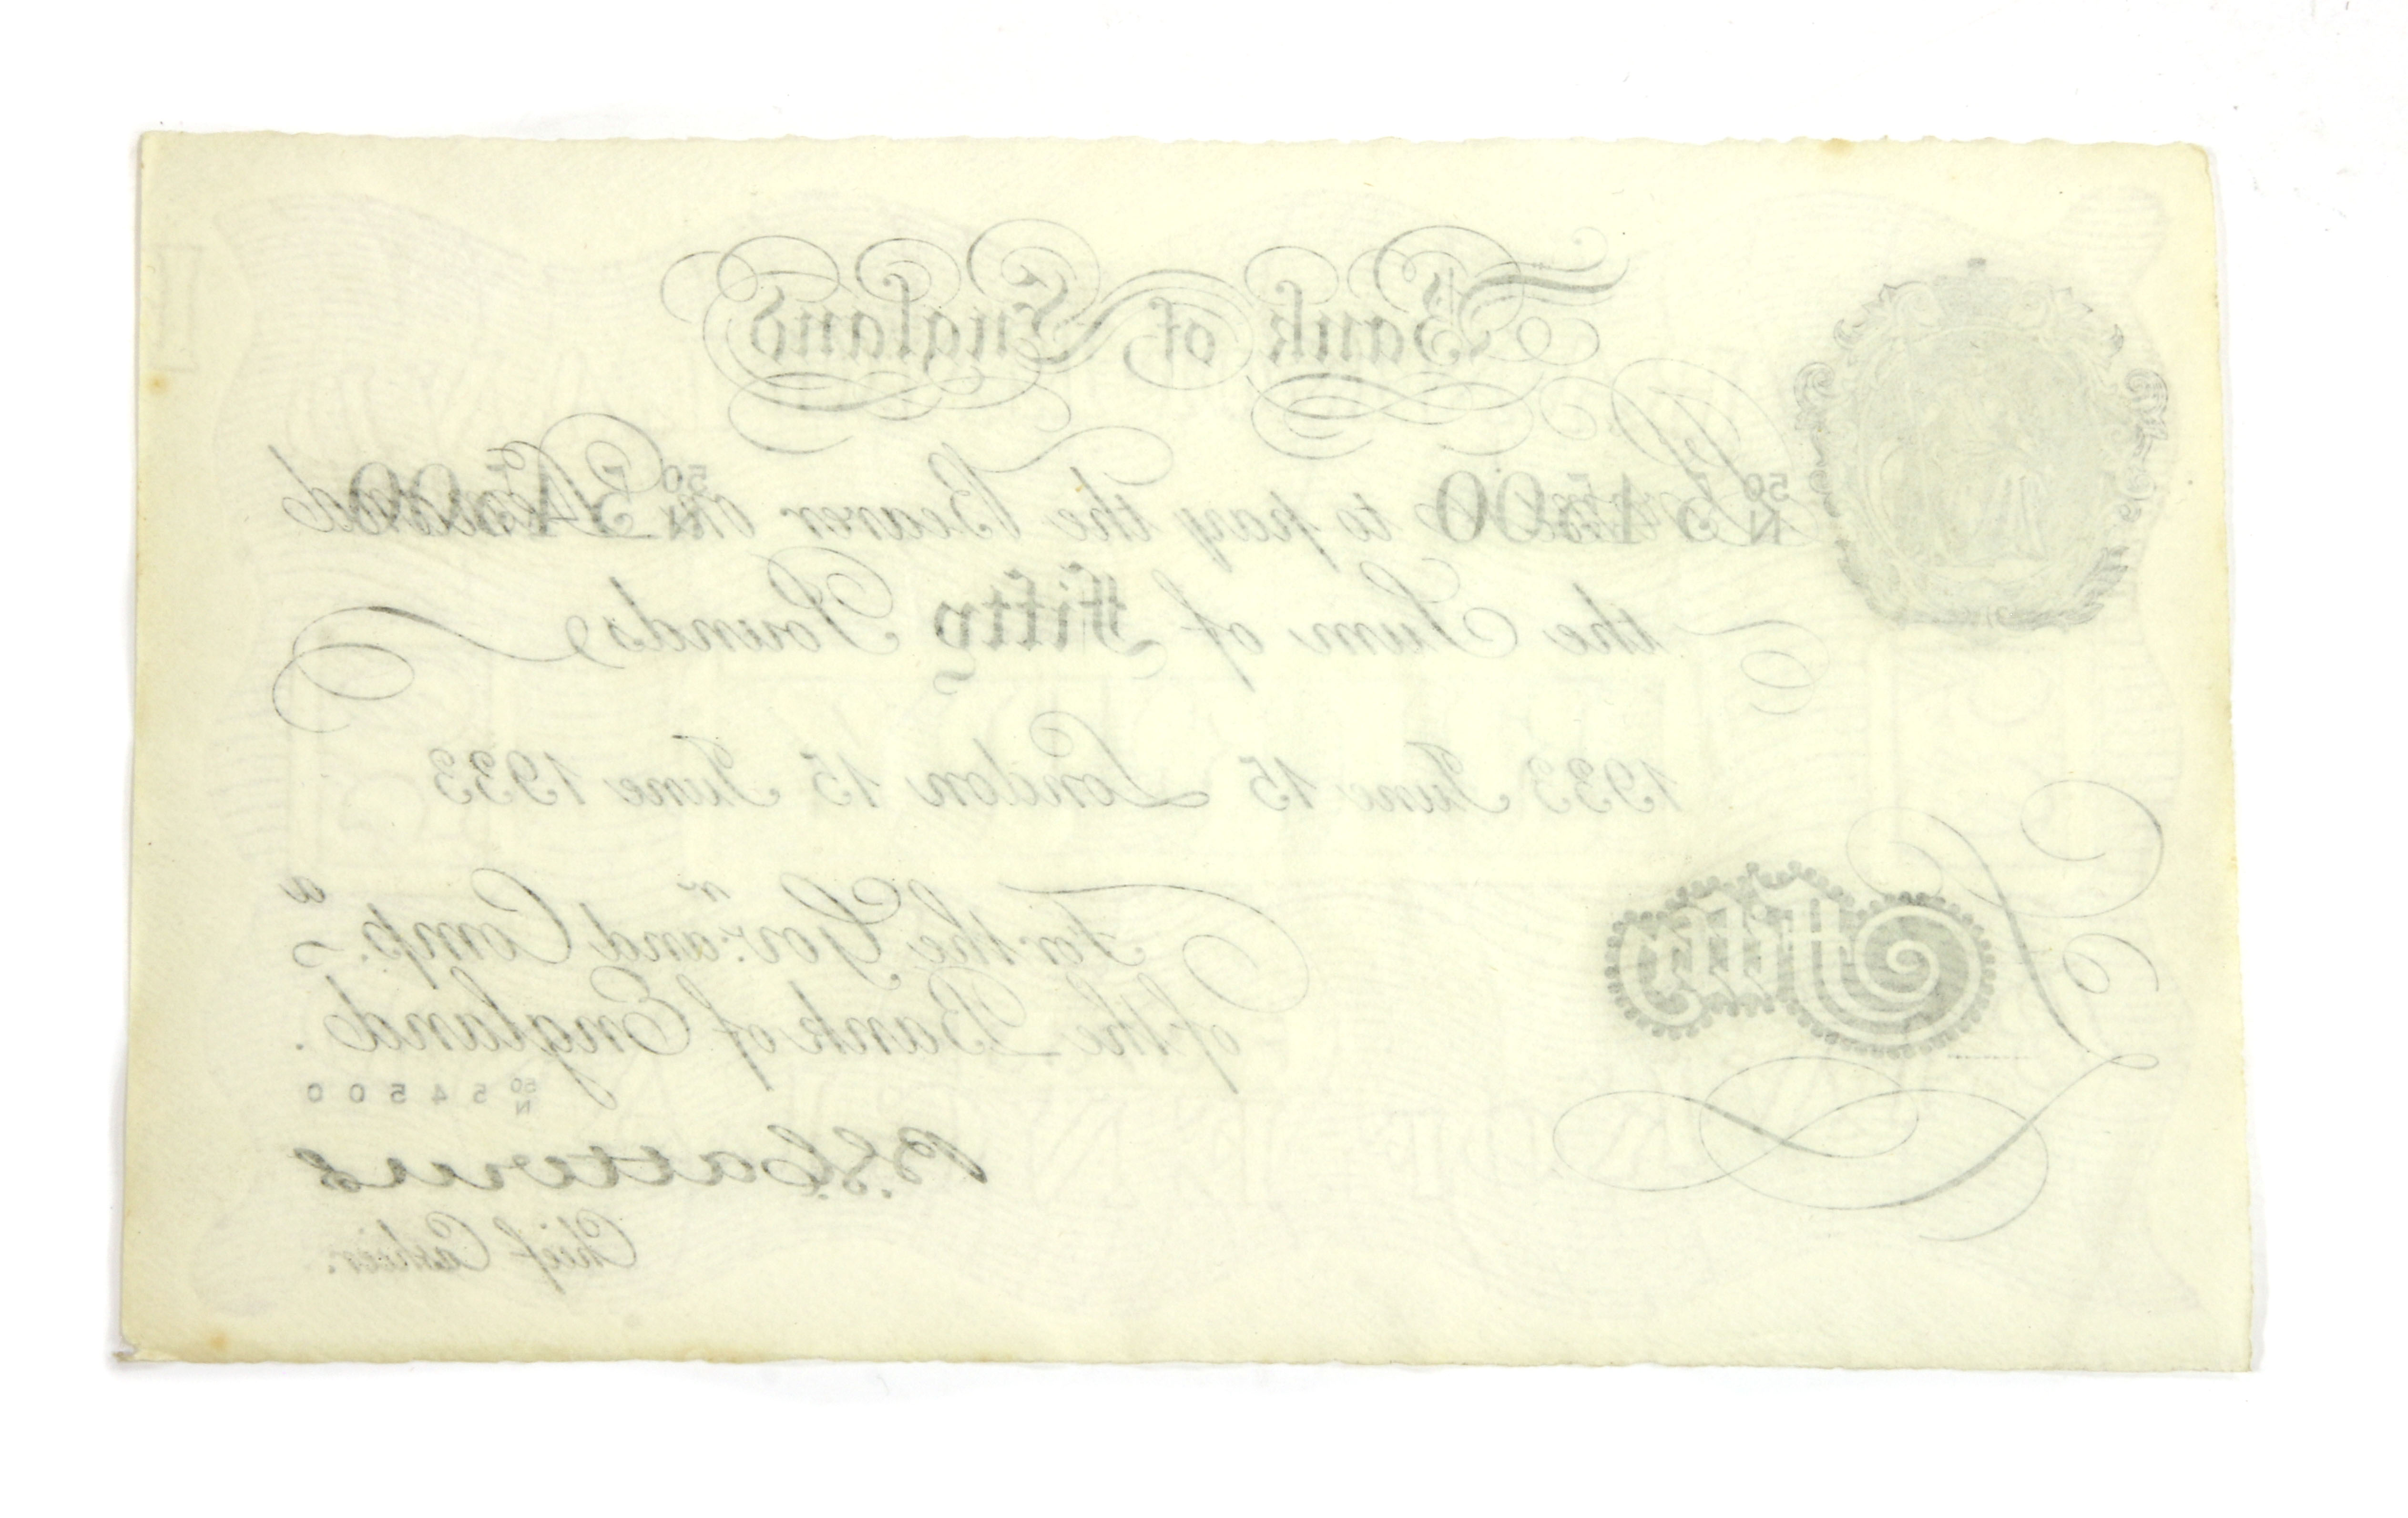 Bank of England
50/N 54500 I Promise to pay the Bearer on Demand 50/N 54500
the Sum of Fifty Pounds
1933 June 15 London 15 June 1933
For the Gov.r and Comp.a
of the Bank of England.
£Fifty
50/N 54500
B.G. Catterns
Chief Cashier.